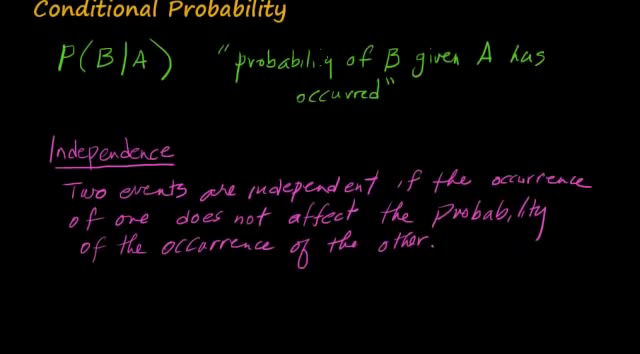 Conditional Probability
P(B/A) "probability of B given A has
occurred"
Independence
Two events are independent if the occurrence
of one does not affect the probability
of the occurrence of the other.